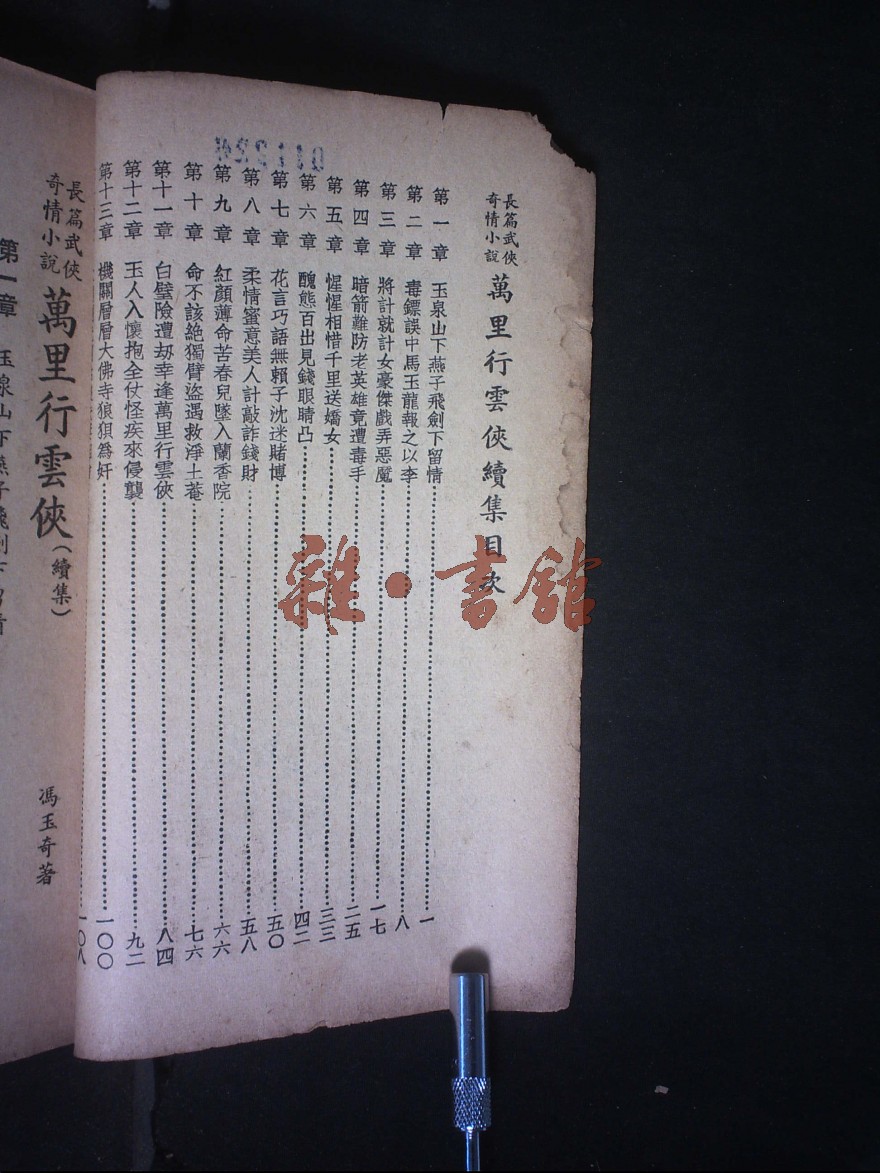 長篇武俠奇情小說 萬里行雲俠續集目次
第一章 玉泉山下燕子飛劍下留情……一
第二章 毒鏢誤中馬玉龍報之以李……八
第三章 將計就計女豪傑戲弄惡魔……一七
第四章 暗箭難防老英雄竟遭毒手……二五
第五章 惺惺相惜千里送嬌女……三三
第六章 醜態百出見錢眼睛凸……四二
第七章 花言巧語無賴子沈迷賭博……五〇
第八章 柔情蜜意美人計敲詐錢財……五八
第九章 紅顏薄命苦春兒墜入蘭香院……六六
第十章 命不該絕獨臂盜遇救淨土菴……七六
第十一章 白璧險遭劫幸逢萬里行雲俠……八四
第十二章 玉人入懷抱全仗怪疾來侵襲……九二
第十三章 機關層層大佛寺狼狽爲奸……一〇〇
一〇八
長篇武俠奇情小說 萬里行雲俠(續集) 馮玉奇著
第一章 玉泉山下燕子飛劍下留情
雜·書館